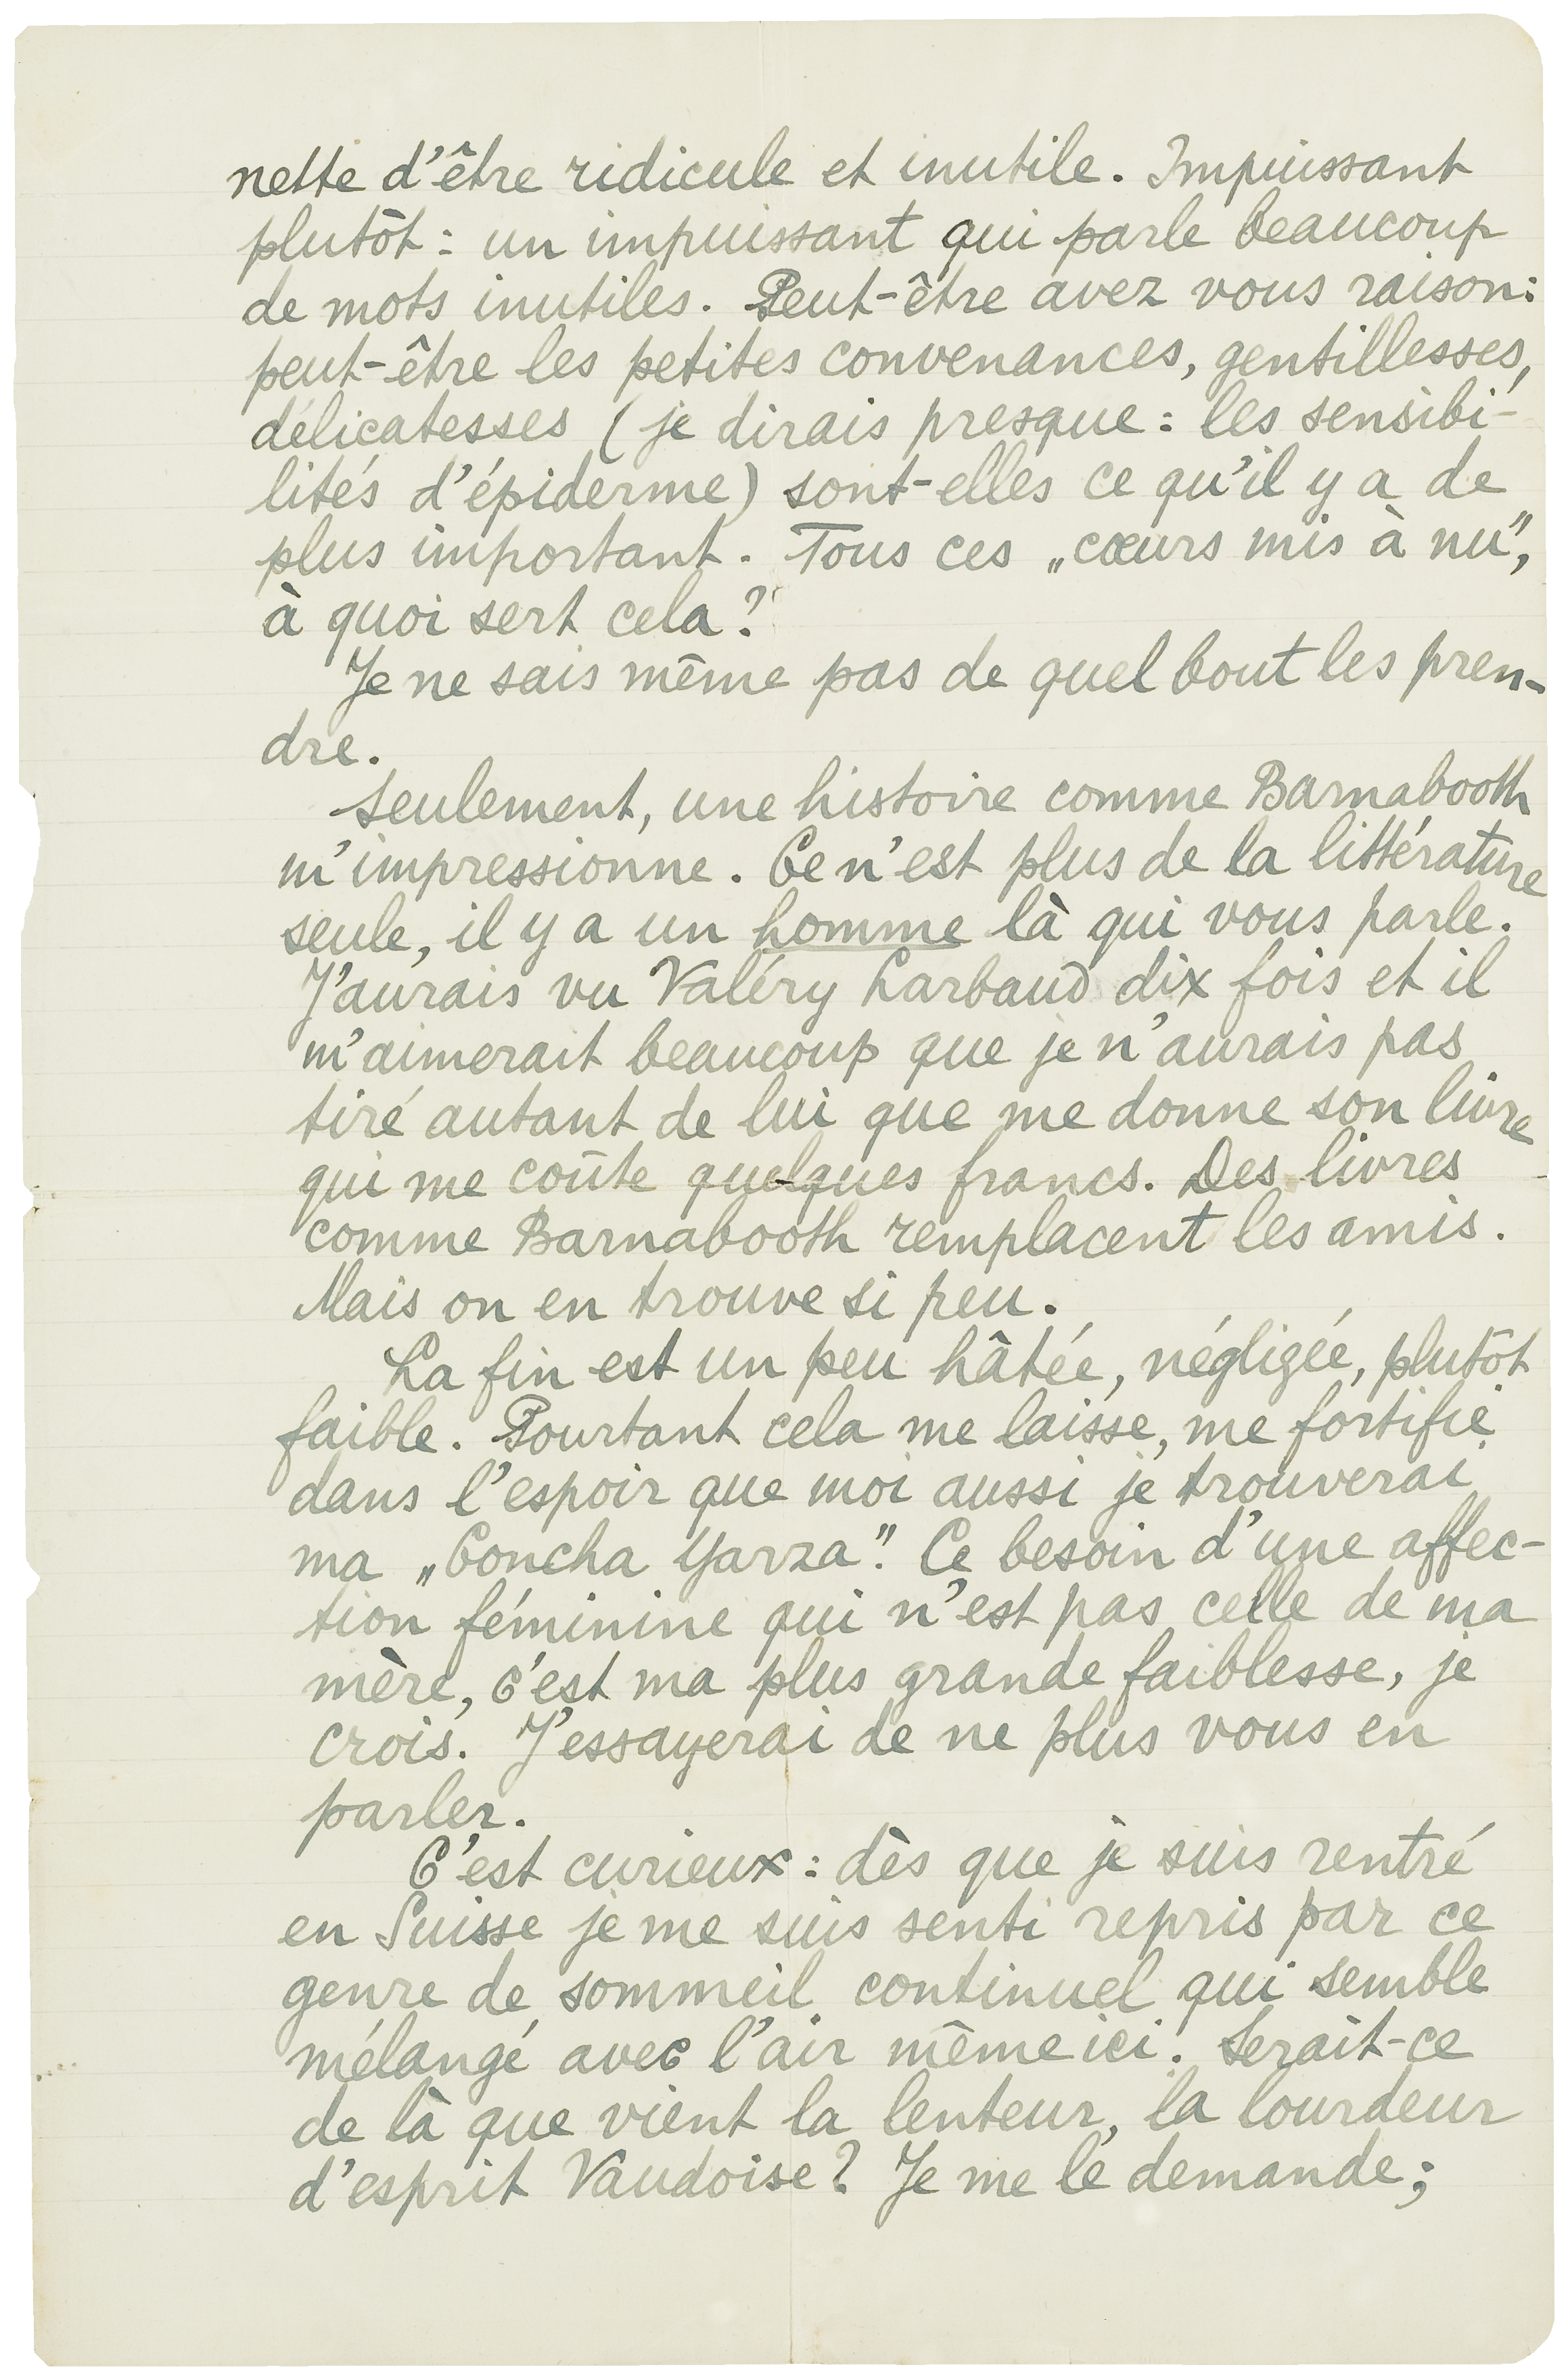 nette d'être ridicule et inutile. Impuissant
plutôt : un impuissant qui parle beaucoup
de mots inutiles. Peut-être avez vous raison :
peut-être les petites convenances, gentillesses,
délicatesses (je dirais presque : les sensibi-
lités d'épiderme) sont-elles ce qu'il y a de
plus important. Tous ces „cœurs mis à nu",
à quoi sert cela ?
Je ne sais même pas de quel bout les pren-
dre.
Seulement, une histoire comme Barnabooth
m'impressionne. Ce n'est plus de la littérature
seule, il y a un homme là qui vous parle.
J'aurais vu Valéry Larbaud dix fois et il
m'aimerait beaucoup que je n'aurais pas
tiré autant de lui que me donne son livre
qui me coûte quelques francs. Des livres
comme Barnabooth remplacent les amis.
Mais on en trouve si peu.
La fin est un peu hâtée, négligée, plutôt
faible. Pourtant cela me laisse, me fortifie
dans l'espoir que moi aussi je trouverai
ma „Concha Yarza". Ce besoin d'une affec-
tion féminine qui n'est pas celle de ma
mère, c'est ma plus grande faiblesse, je
crois. J'essayerai de ne plus vous en
parler.
C'est curieux : dès que je suis rentré
en Suisse je me suis senti repris par ce
genre de sommeil continuel qui semble
mélangé avec l'air même ici. Serait-ce
de là que vient la lenteur, la lourdeur
d'esprit Vaudoise ? Je me le demande ;